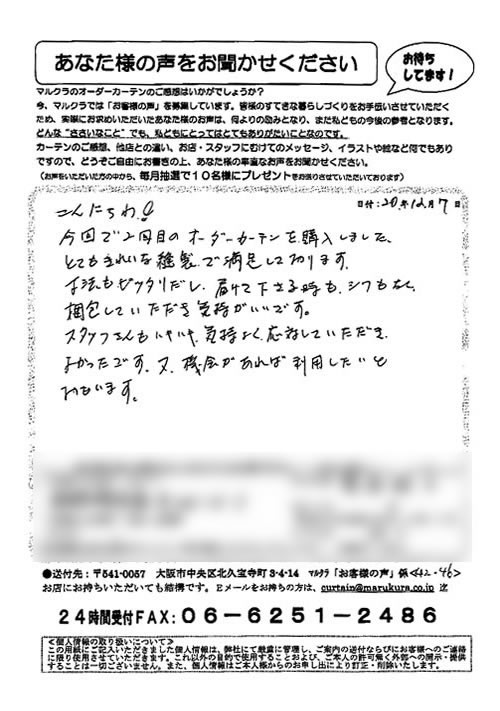 あなた様の声をお聞かせください
お待ち
してます!
マルクラのオーダーカーテンのご感想はいかがでしょうか?
今、マルクラでは「お客様の声」を募集しています。皆様のすてきな暮らしづくりをお手伝いさせていただく
ため、実際にお求めいただいたあなた様のお声は、何よりの励みとなり、また私どもの今後の参考となります。
どんな“ささいなこと”でも、私どもにとってはとてもありがたいことなのです。
カーテンのご感想、他店との違い、お店・スタッフにむけてのメッセージ、イラストや絵など何でもあり
ですので、どうぞご自由にお書きの上、あなた様の率直なお声をお聞かせください。
(お声をいただいた方の中から、毎月抽選で10名様にプレゼントをお送りさせていただいております)
日付:20年12月7日
こんにちわ!
今回で2回目のオーダーカーテンを購入しました。
とてもきれいな縫製で満足しております。
寸法もピッタリだし、届けて下さる時も、シワもなく
梱包していただき気持がいいです。
スタッフさんもいつも気持よく応対していただき、
よかったです。又、機会があれば利用したいと
おもいます。
●送付先:〒541-0057 大阪市中央区北久宝寺町3-4-14 マルクラ「お客様の声」係<42-46>
お店にお持ちいただいても結構です。Eメールをお持ちの方は、curtain@marukura.co.jp 迄
24時間受付FAX:06-6251-2486
<個人情報の取り扱いについて>
この用紙にご記入いただきました個人情報は、弊社にて厳重に管理し、ご案内の送付ならびにお客様へのご連絡
に限り使用させていただきます。これ以外の目的で使用することおよび、ご本人の許可無く外部への開示・提供
することは一切ございません。また、個人情報はご本人様からのお申し出により訂正・削除いたします。